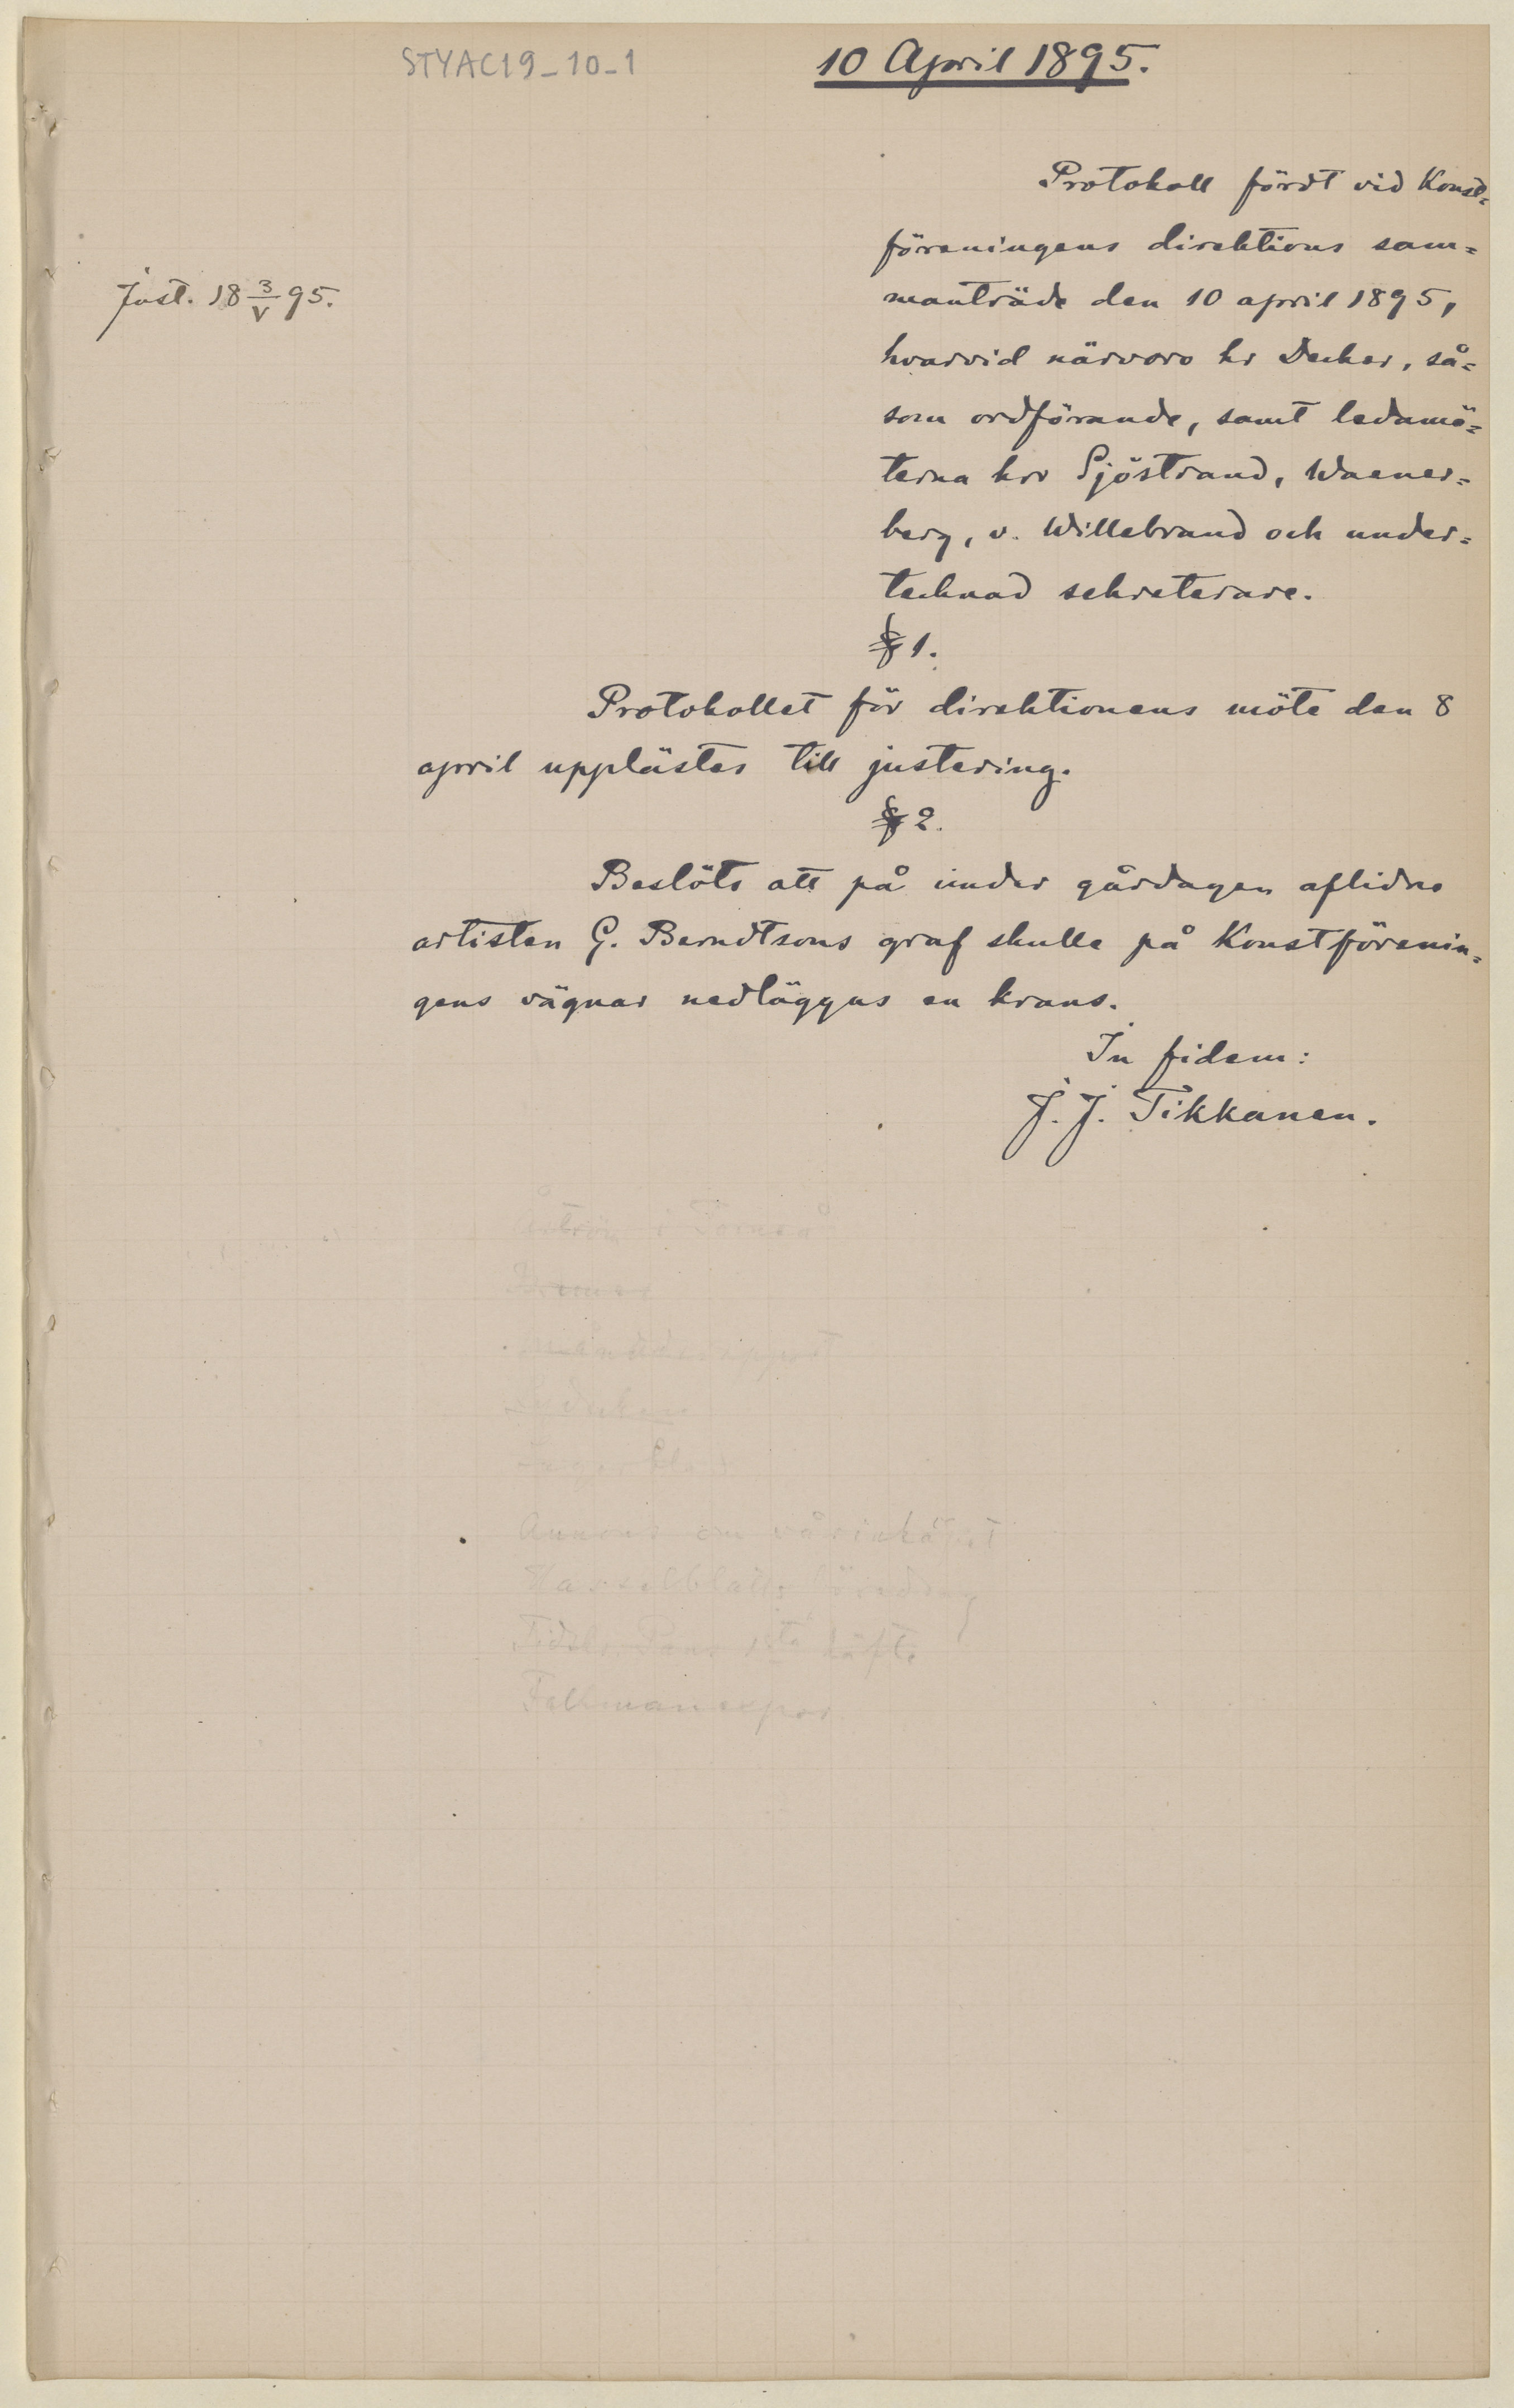 STYAC19_10_1
10 April 1895.
Just. 18 3/V 95.
Protokoll fördt vid Konst=
föreningens direktions sam=
manträde den 10 april 1895,
hvarvid närvoro hr Decker, så=
som ordförande, samt ledamö=
terna hrr Sjöstrand, Waener=
berg, v. Willebrand och under=
tecknad sekreterare.
§ 1.
Protokollet för direktionens möte den 8
april upplästes till justering.
§ 2.
Beslöts att på under gårdagen aflidne
artisten G. Berndtsons graf skulle på Konstförenin=
gens vägnar nedläggas en krans.
In fidem:
J. J. Tikkanen.
i Torneå
Annons om vårinköpet
Hasselblatts
häfte
Fellmanexpos